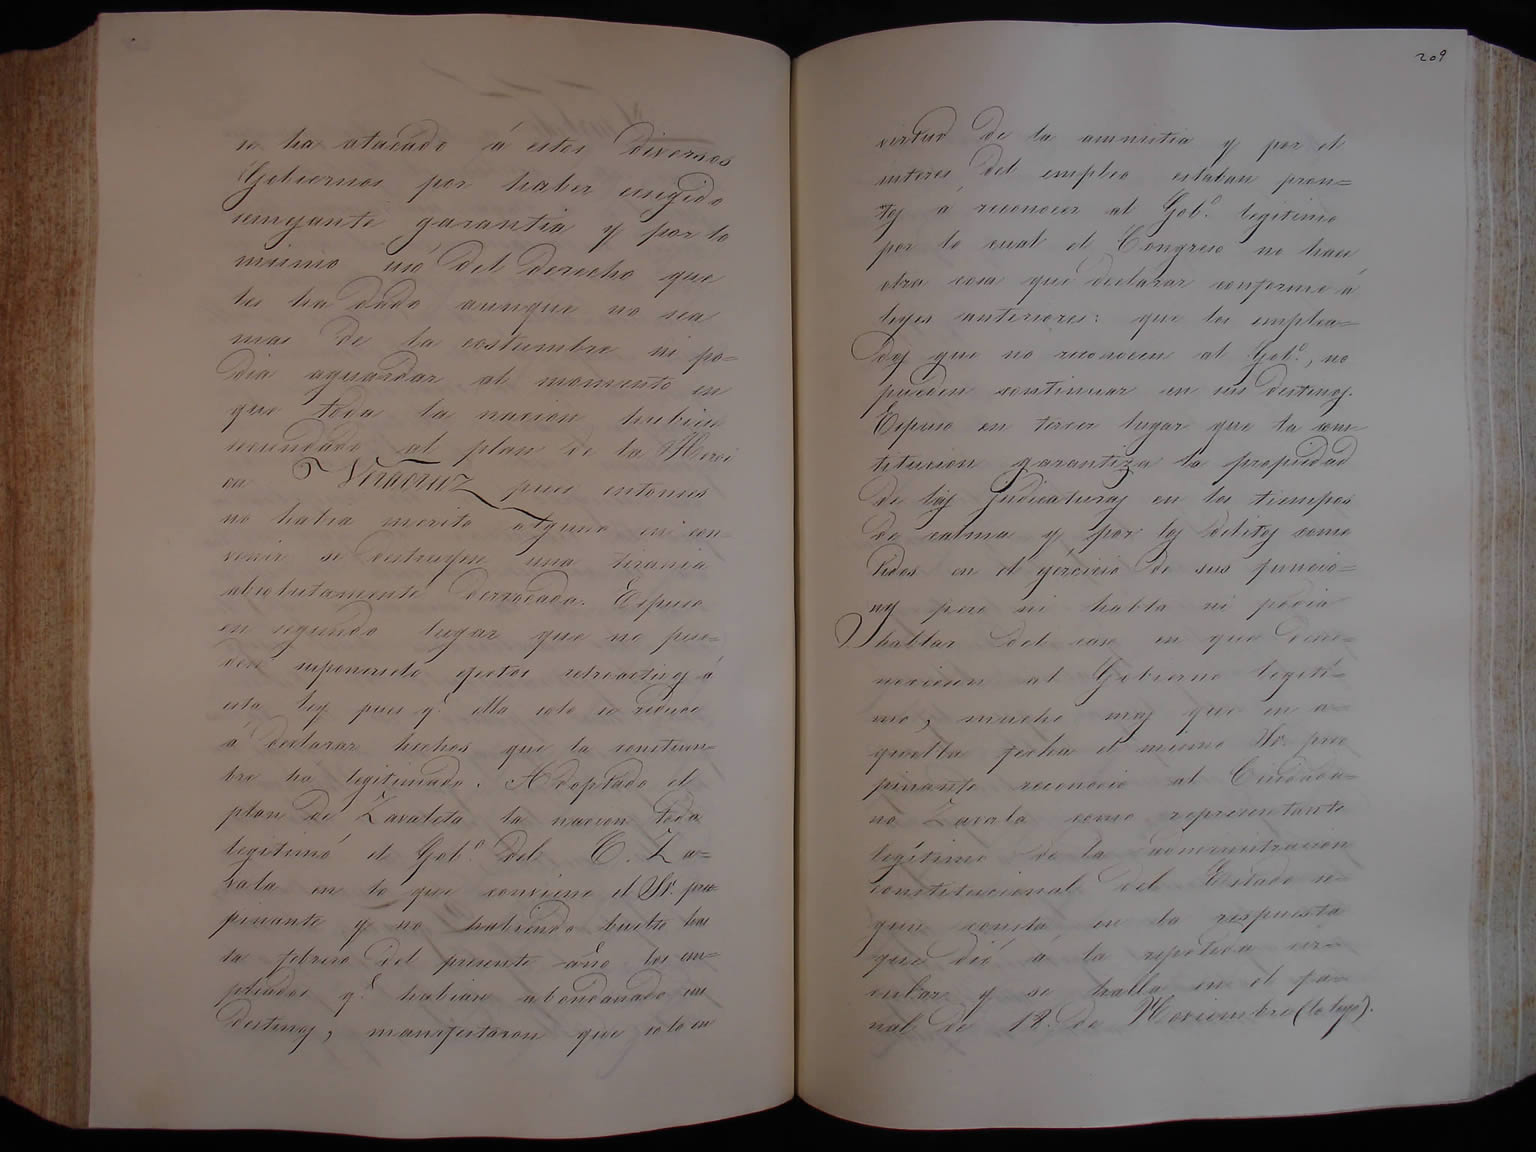 se ha atacado á estos diversos
Gobiernos por haber exigido
semejante garantia y por lo
mismo usó del derecho que
les ha dado aunque no sea
mas de la costumbre ni po=
dia aguardar al momento en
que toda la nacion hubiese
secundado al plan de la
en Veracruz pues entonces
no habia merito alguno en con
venir se destruyese una tirania
absolutamente derrocada. Espuso
en segundo lugar que no pue=
den suponersele efectos retroactivos á
esta ley pues q.e ella solo se reduce
á declarar hechos que la constum=
bre ha legitimado. Adoptado el
plan de Zavaleta la nacion toda
legitimó el Gob.o del C. Za=
vala en lo que conviene el Sr. preo
pinante y no habiendo buelto has
ta febrero del presente año los em=
pleados q.e habian abondanado sus
destinos, manifestaron que solo en
209
virtud de la amnistia y por el
interes del empleo estaban pron=
tos á reconocer al Gob.o legitimo
por lo cual el Congreso no hace
otra cosa que declarar conforme á
leyes anteriores: que los emplea=
dos que no reconocen al Gob.o, no
pueden continuar en sus destinos.
Espuso en tercer lugar que la cons
titucion garantiza la propiedad
de las judicaturas en los tiempos
de calma y por los delitos come
tidos en el ejercicio de sus funcio=
nes pero ni habla ni podia
hablar del caso en que desco=
nociesen al Gobierno legiti=
mo, mucho mas que en a=
quella fecha el mismo Sr. preo
pinante reconocio al Ciudada=
no Zavala como representante
legitimo de la administracion
constitucional del Estado se=
gun consta en la respuesta
que dió á la repetida cir=
cular y se halla en el fa=
nal de 18. de Noviembre (lo leyó).